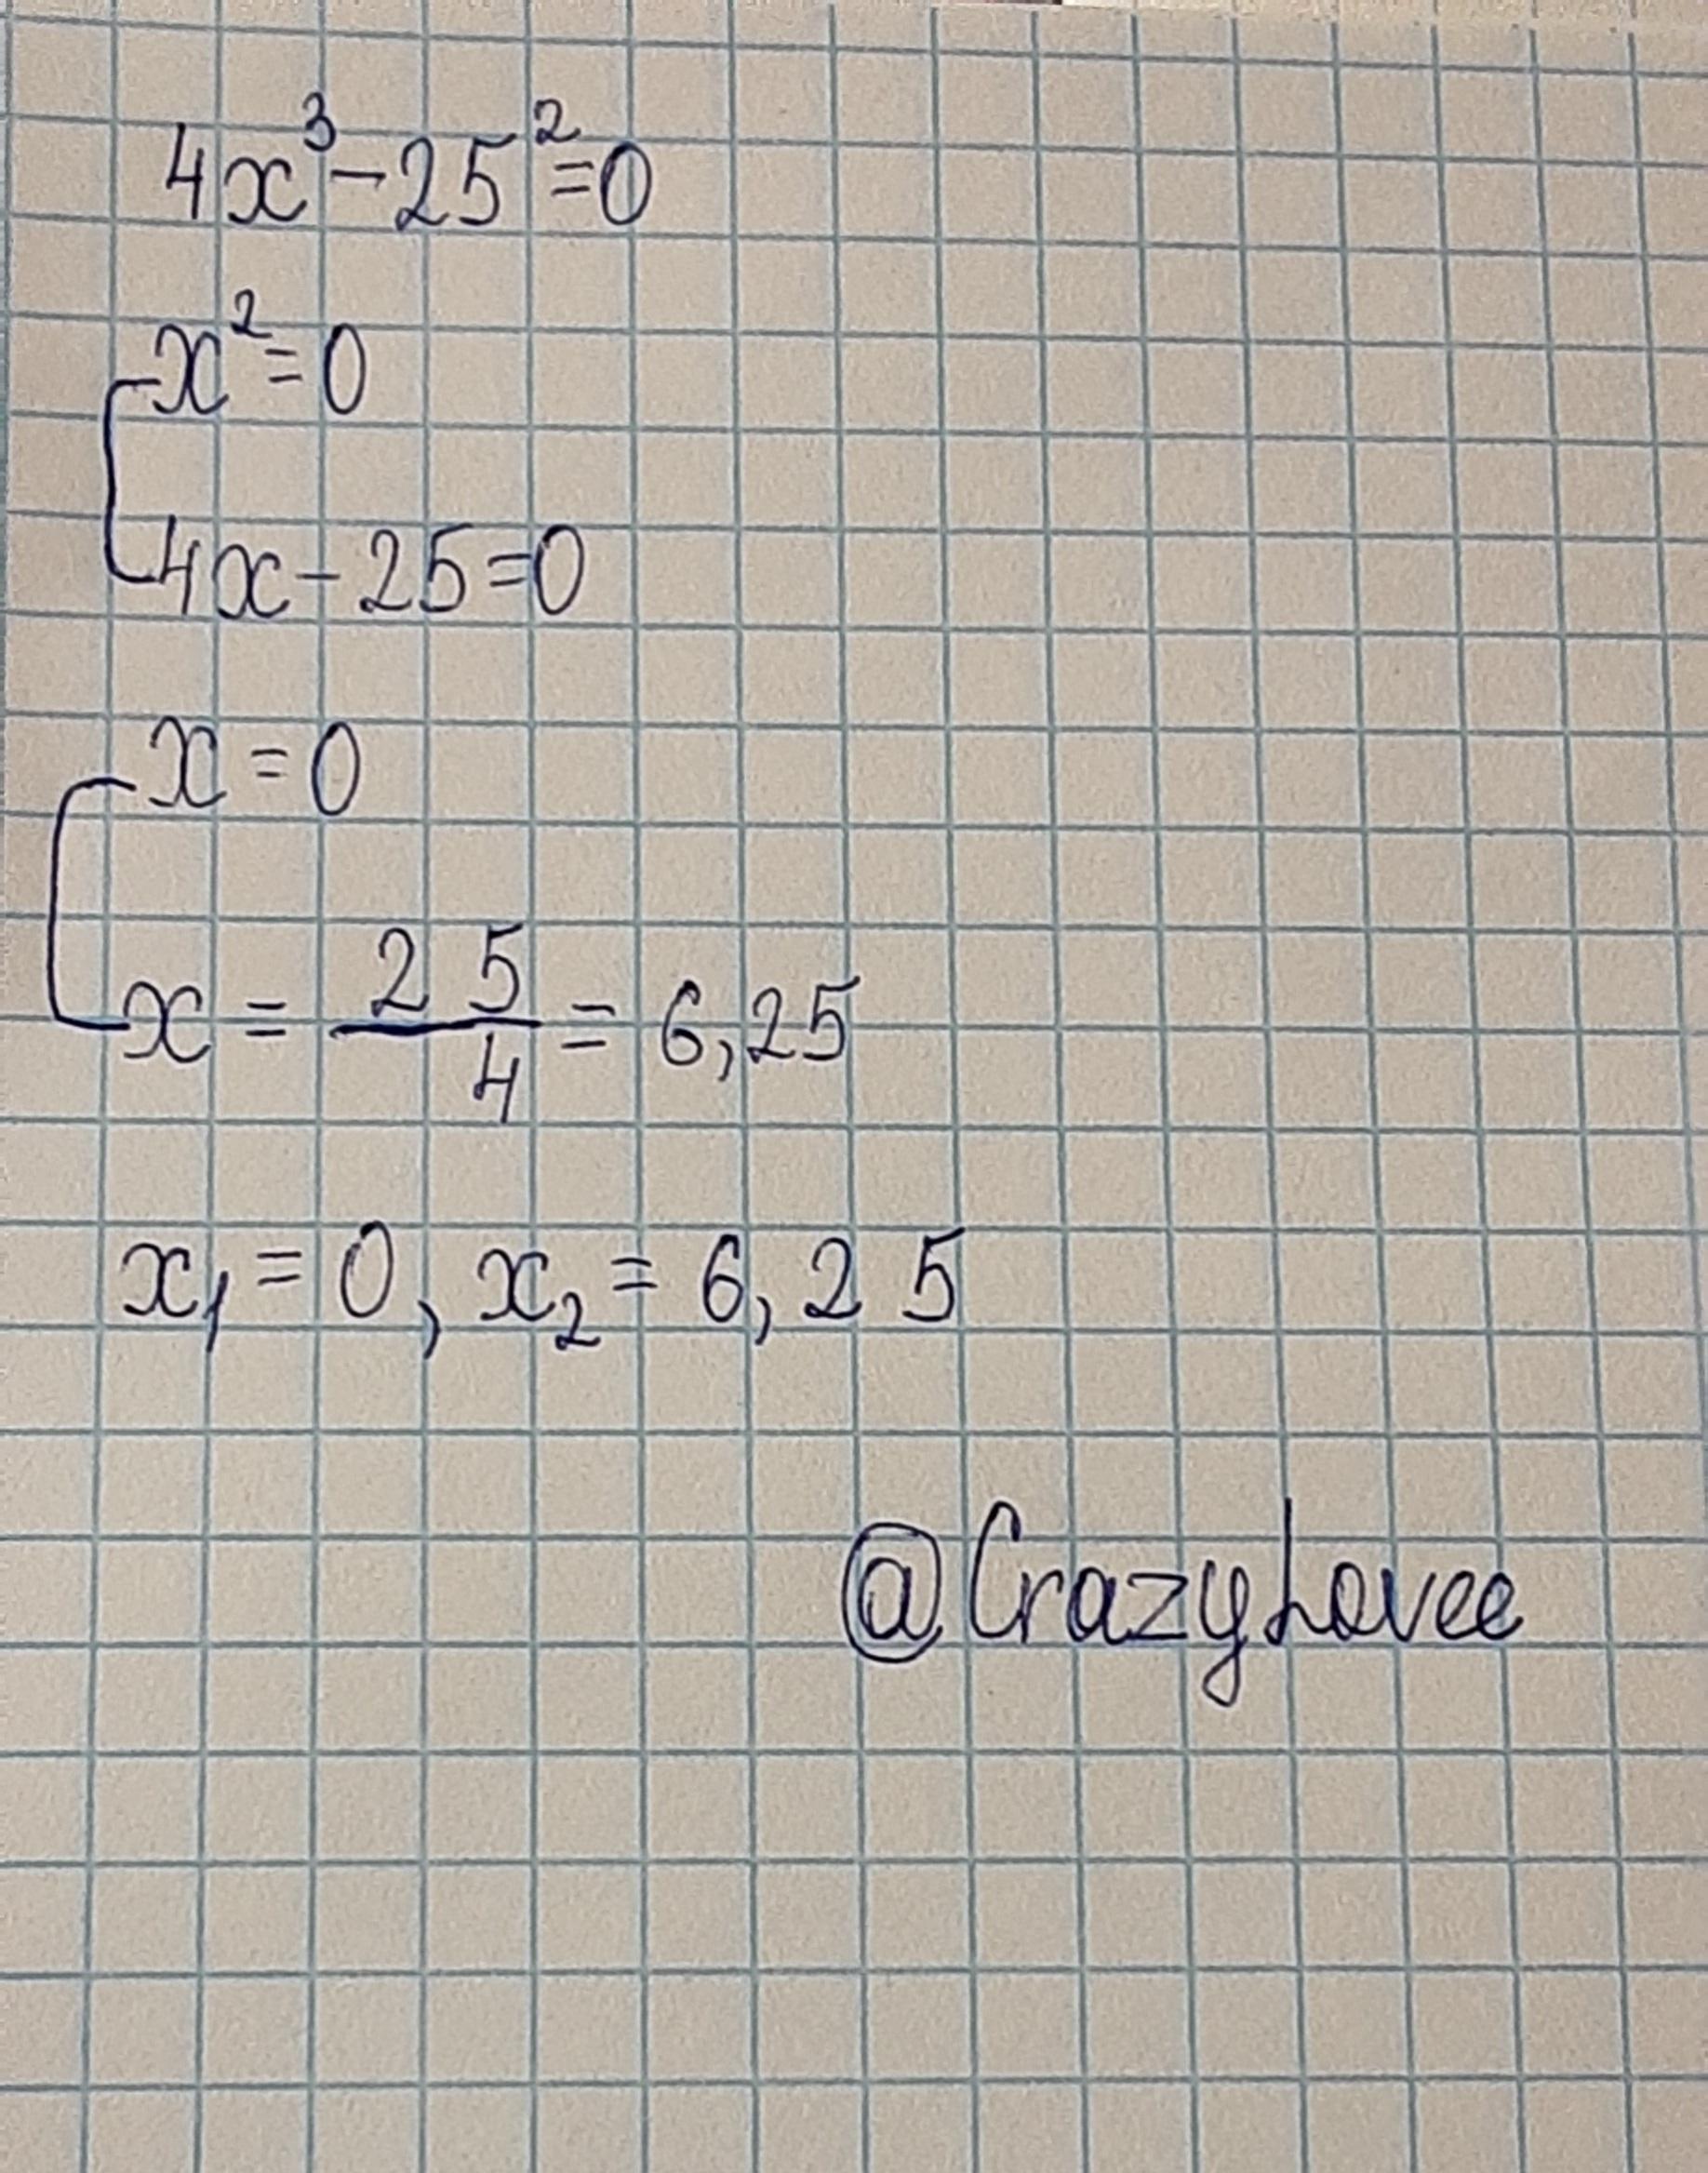 4x³-25²=0
x²=0
4x-25=0
x=0
x=25/4=6,25
x₁=0, x₂=6,25
@CrazyLovee